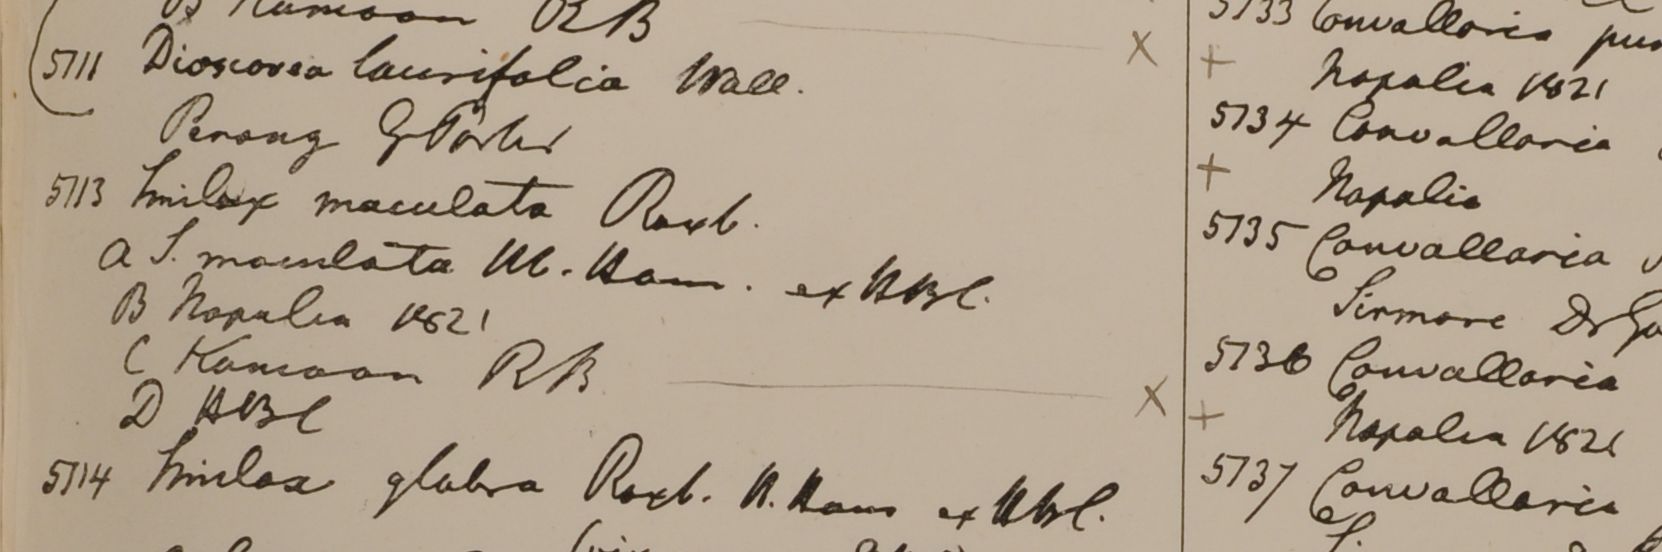 B Kamoon RB
5711 Dioscorea laurifolia Wall.
Penang G Porter
5113 Smilax maculata Roxb.
a S. maculata H. Ham. ex HBC.
B Napalia 1821
C Kamoon RB
D HBC
5114 Smilax glabra Roxb. H. Ham ex HBC.
5733 Convallaria
Napalia 1821
5734 Convallaria
Napalia
5735 Convallaria
Sirmore Dr Go
5736 Convallaria
Napalia 1821
5737 Convallaria